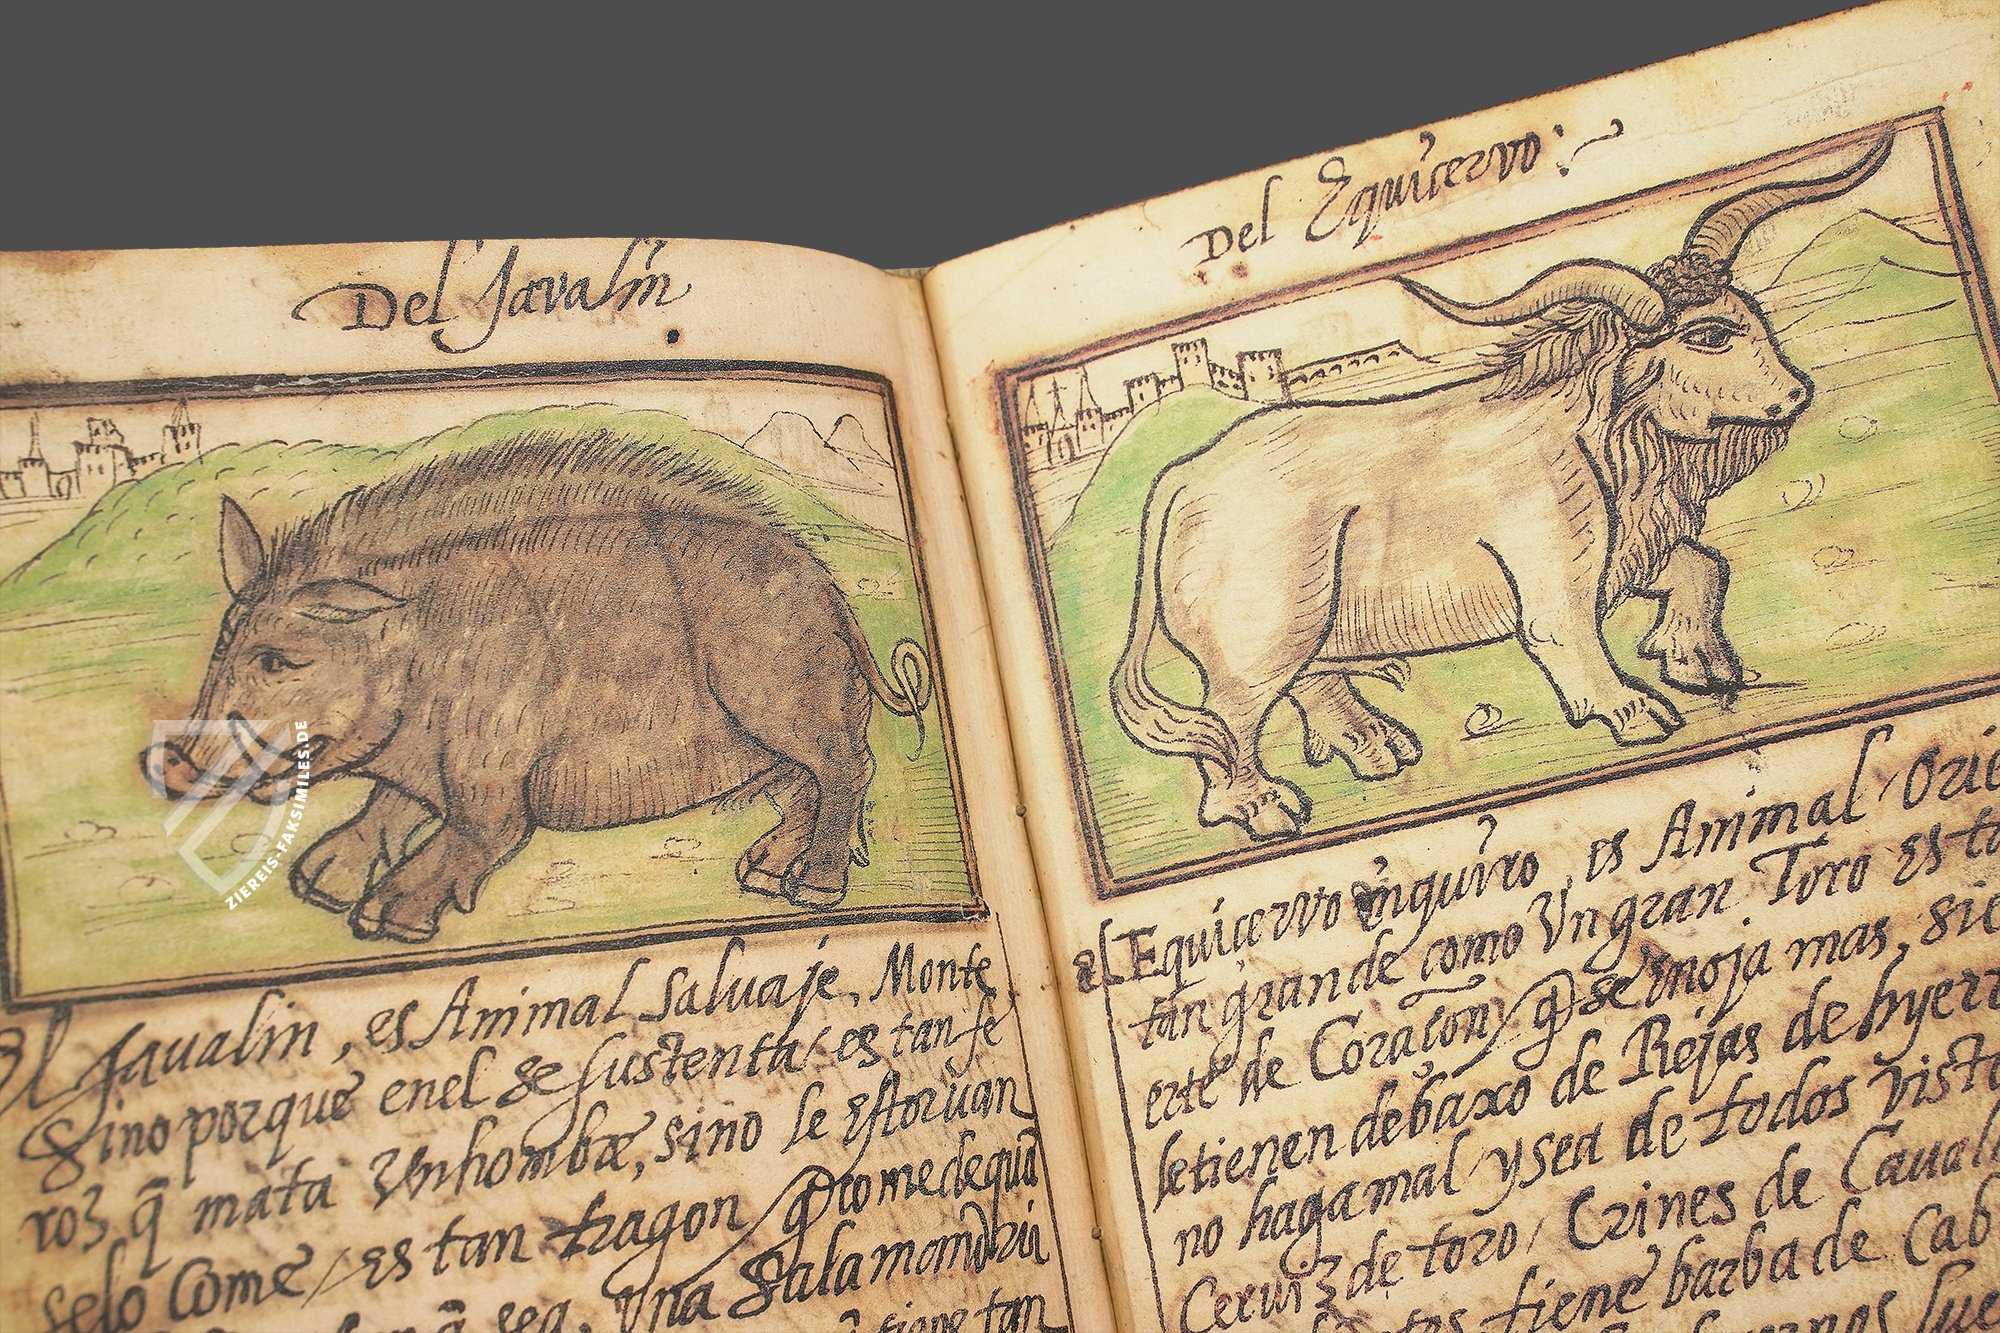 Del Javalin
El Javalin, es Animal Salvaje, Monte
Sino porque enel se sustenta / es tan fe
roz q̃ mata Un hombre, sino le estorvan
selo Come / es tan tragon q̃ come de qua
sea, Una Salamandri
tiene tan
Del Equicervo
el Equicervo es Animal / Orie
tan grande como Un gran Toro esta
erte de Coraçon q̃ se enoja mas, sie
le tienen debaxo de Rejas de hyerr
no haga mal / y sea de todos visto
Cerviz de toro / Crines de Cavall
tiene barba de Cab
ZIEREIS-FAKSIMILES.DE